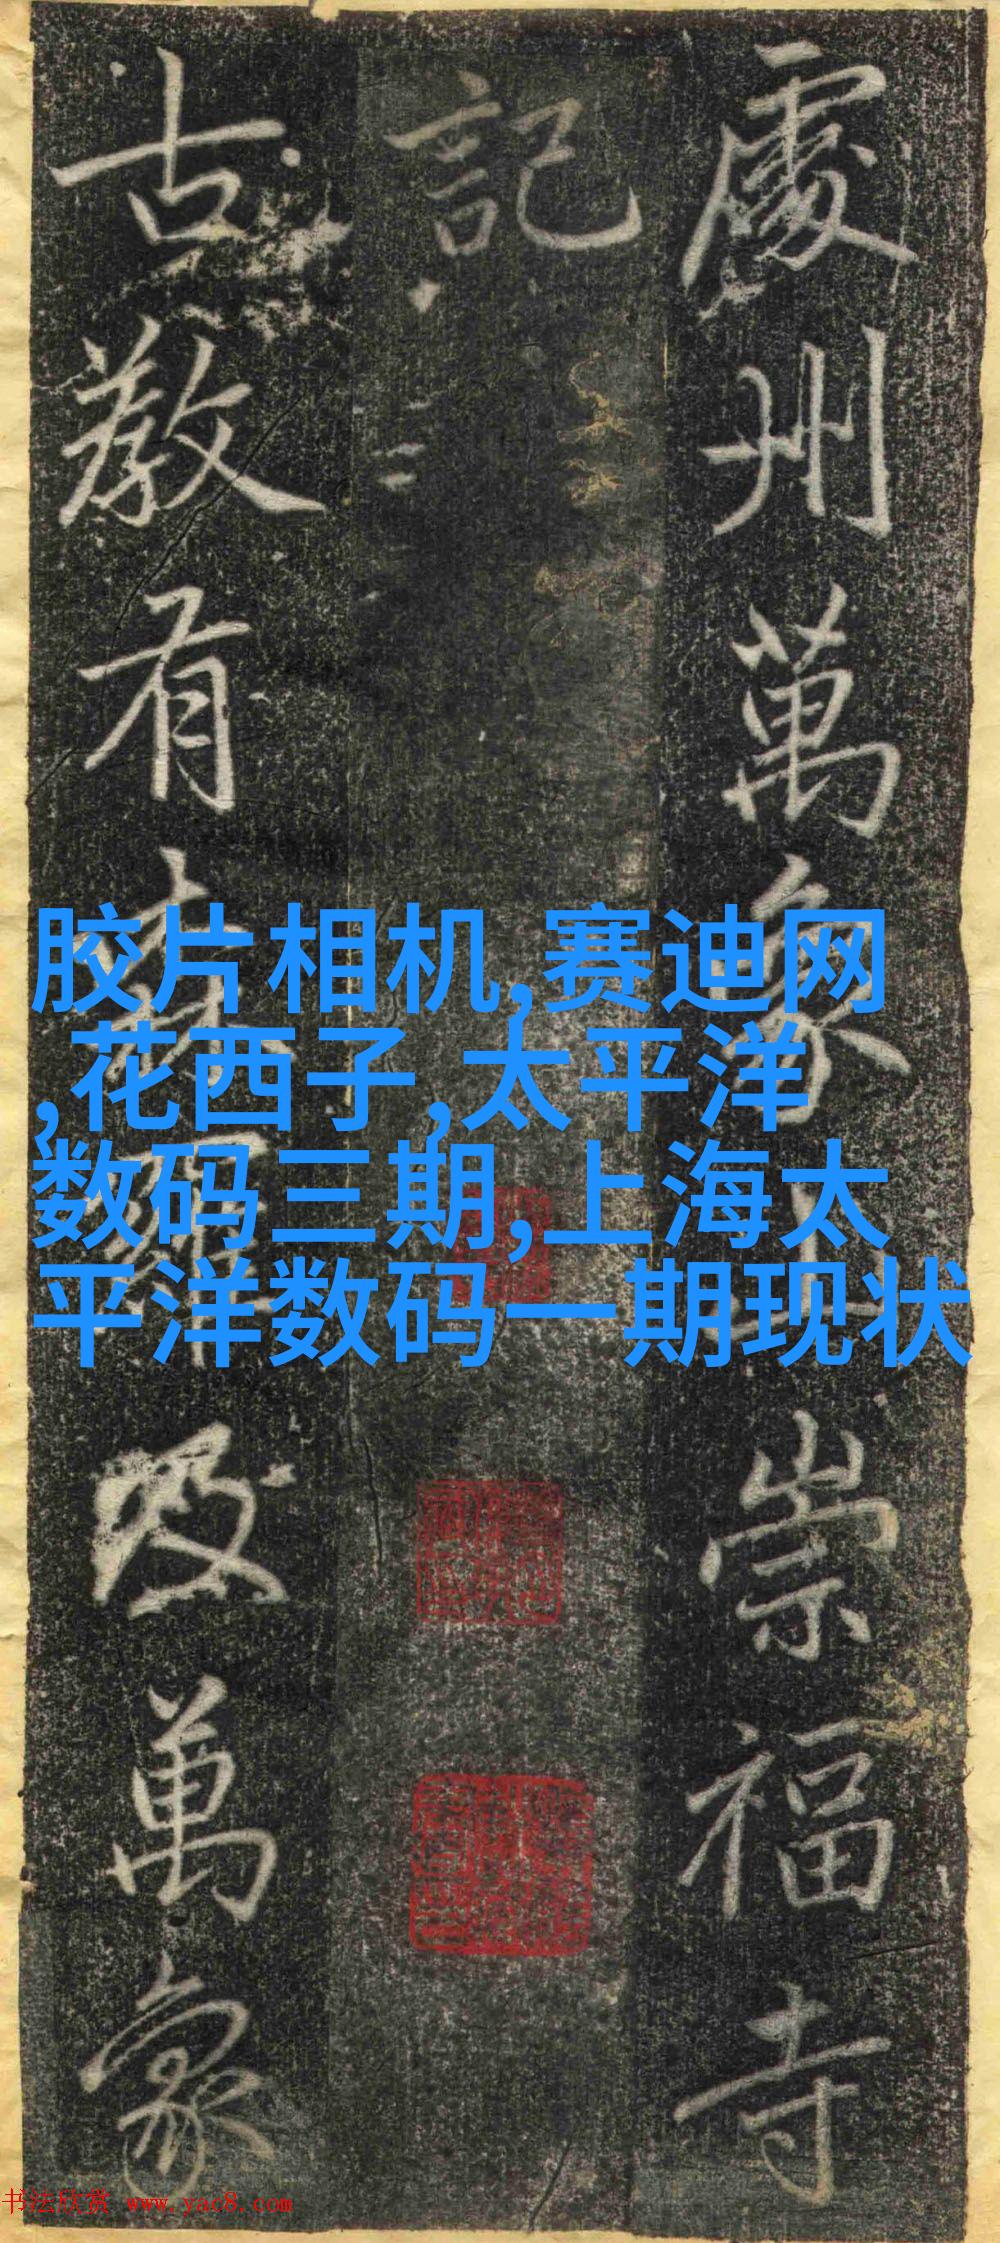 處州萬象山崇福寺
記
古教有森羅及萬象
胶片相机,赛迪网
,花西子,太平洋
数码三期,上海太
平洋数码一期现状
书法欣赏 www.yac8.com